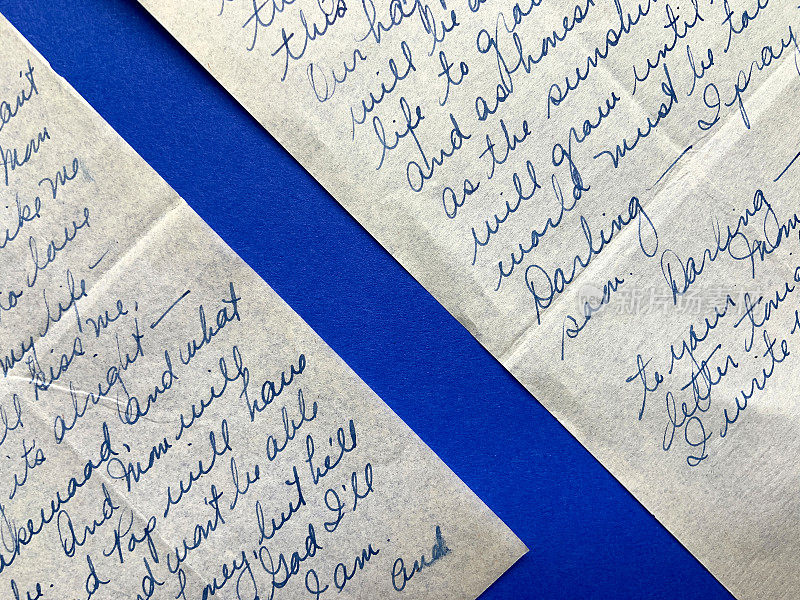 an't
Mom
like me
to love
my life —
ll kiss me,
its alright —
akewood, and what
be. And Mom will
d Pop will have
nd won't be able
oney, but he'll
God I'll
I am. and
this
Our hap
will be a
life to grow
and as honest
as the sunshin
will grow until
world must be to
Darling — I pray
soon. Darling —
to your Mom
letter tonig
I write
iStock
Credit: